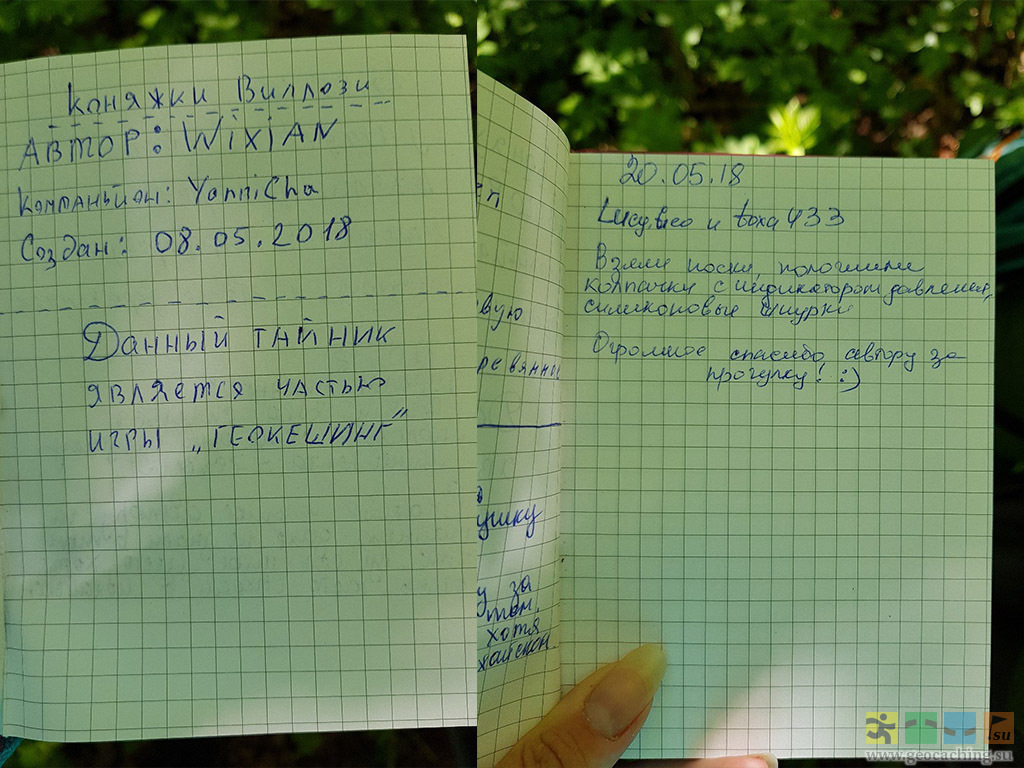 Коняжки Виллози
Автор: WiXiAN
Компаньйон: YanniCha
Создан: 08.05.2018
Данный тайник
является частью
игры „ГЕОКЕШИНГ”
вую
ревянное
ушку
у за
хотя
20.05.18
и toxa433
Взяли носки, положили
колпачки с индикатором давления,
силиконовые шнурки
Огромное спасибо автору за
прогулку! :)
.su
www.geocaching.su